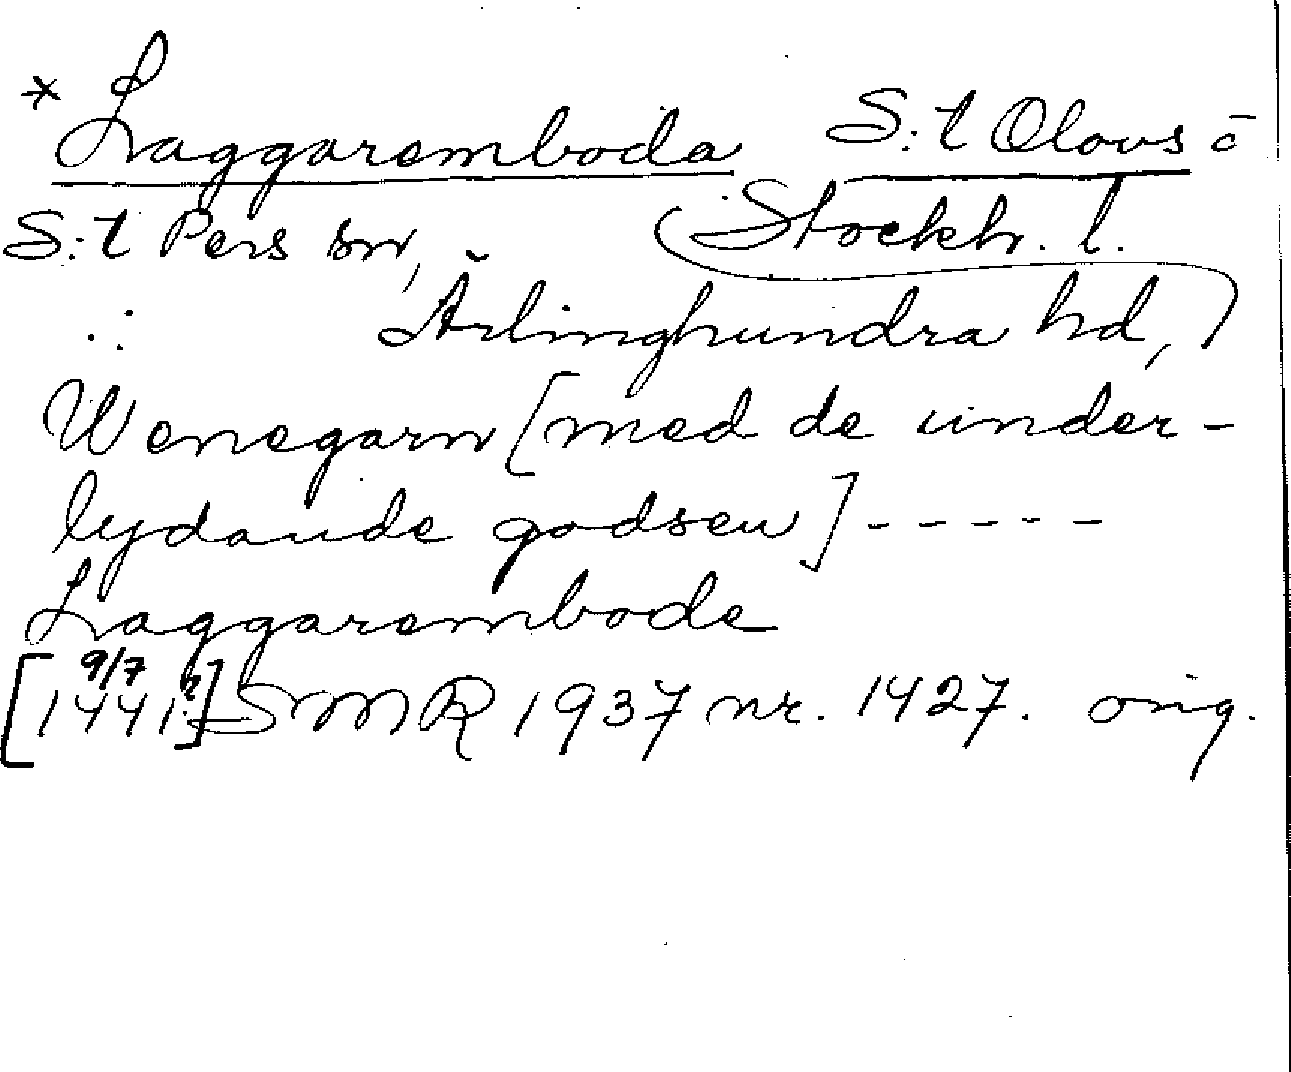 * Laggaremboda S:t Olovs o
S:t Pers sn, (Stockh. l.
∴ Ärlinghundra hd,)
Wenegarn [med de under-
lydande godsen] -----
Laggarembode
[9/7 1441?] SMR 1937 nr. 1427. orig.